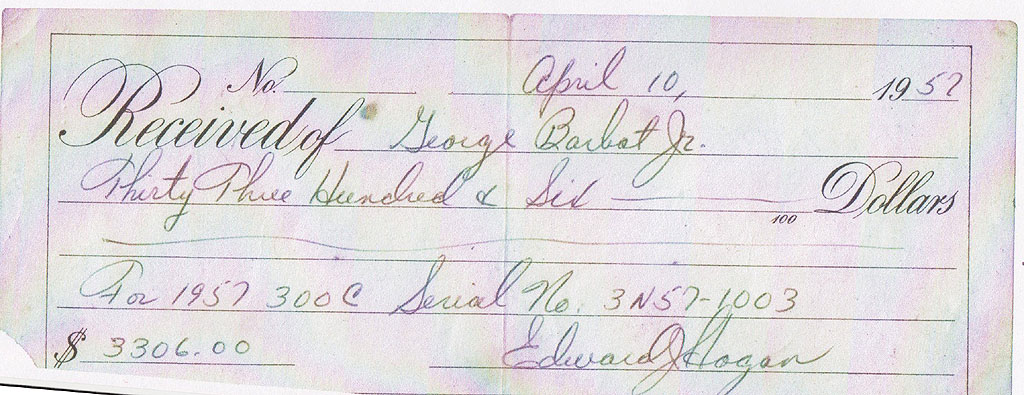 No. April 10, 1957
Received of George Barbot Jr.
Thirty Three Hundred & Six 100 Dollars
For 1957 300C Serial No. 3N57-1003
$ 3306.00 Edward J Hogan